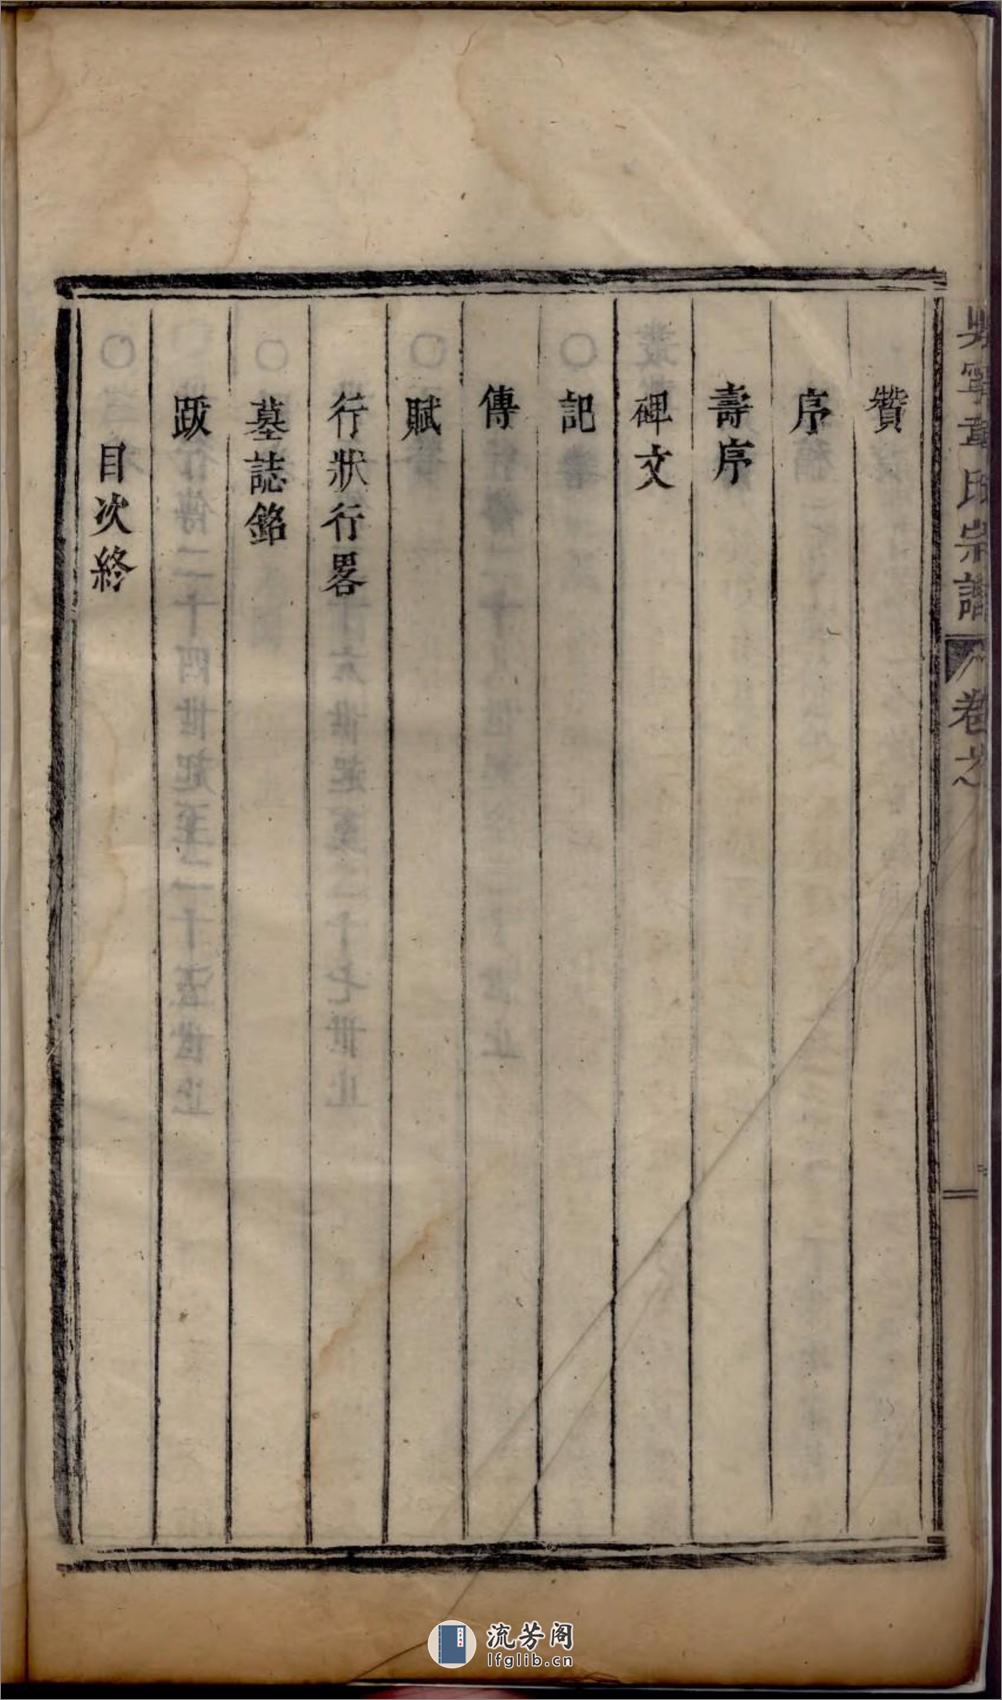 吳寧章氏宗譜 卷之
贊
序
壽序
碑文
記
傳
賦
行狀行畧
墓誌銘
跋
目次終
流芳阁
lfglib.cn